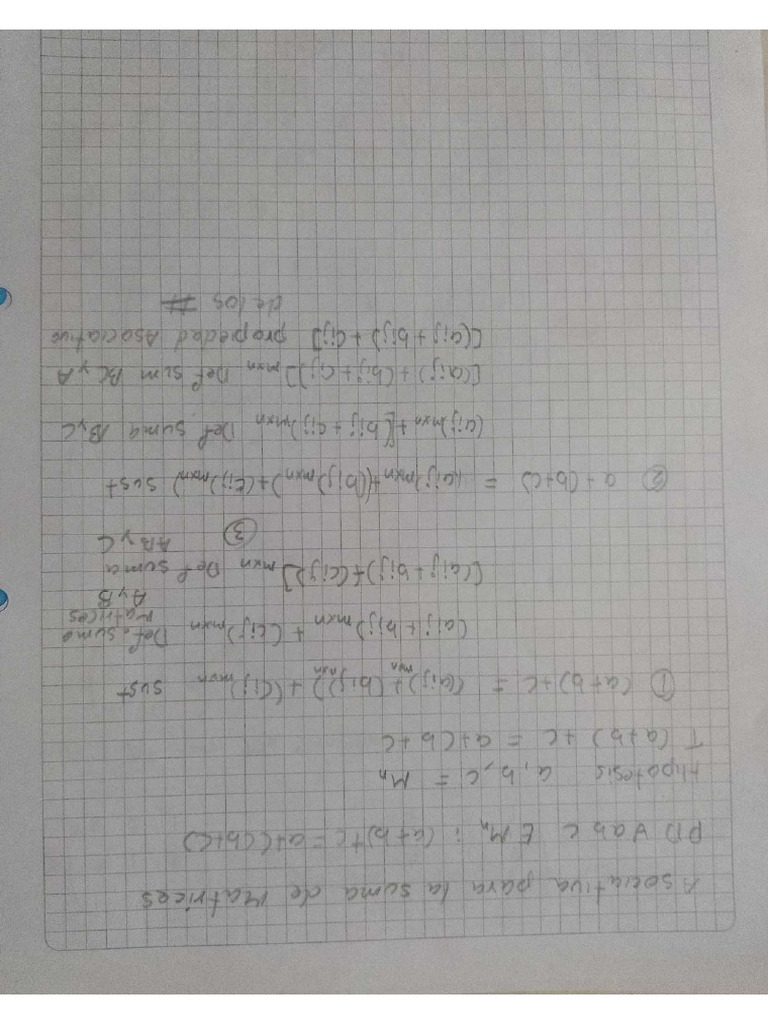 Asociativa para la suma de Matrices
PD ∀abc ∈ Mn : (a+b)+c = a+(b+c)
Hipotesis a, b, c = Mn
T (a+b) + c = a+(b+c
① (a+b)+c = (aij)mxn+(bij)mxn) + (cij)mxn sust
(aij + bij)mxn + (cij)mxn Def. suma Matrices A y B
[(aij + bij)+(cij)]mxn Def suma AB y C
③
② a+(b+c) = (aij)mxn+((bij)mxn)+(cij)mxn) sust
(aij)mxn + [bij + cij)mxn Def. suma B y C
[(aij) + (bij + cij)]mxn Def sum BC y A
[(aij + bij) + cij] propedad Asociativa
de los #